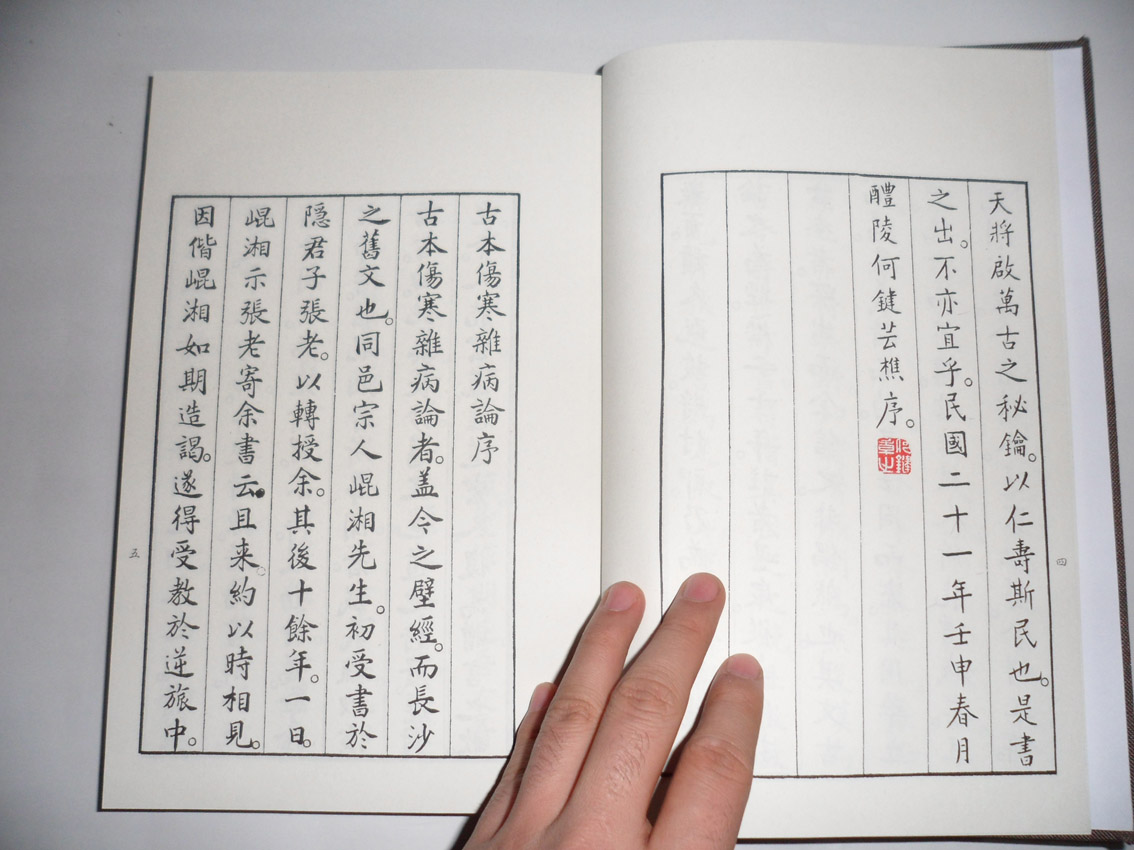 天將啟萬古之秘鑰。以仁壽斯民也。是書
之出。不亦宜乎。民國二十一年壬申春月
醴陵何鍵芸樵序。
何鍵之章
四
古本傷寒雜病論序
古本傷寒雜病論者。盖今之壁經。而長沙
之舊文也。同邑宗人崐湘先生。初受書於
隱君子張老。以轉授余。其後十餘年。一日。
崐湘示張老寄余書云。且来。約以時相見。
因偕崐湘如期造謁。遂得受教於逆旅中。
五